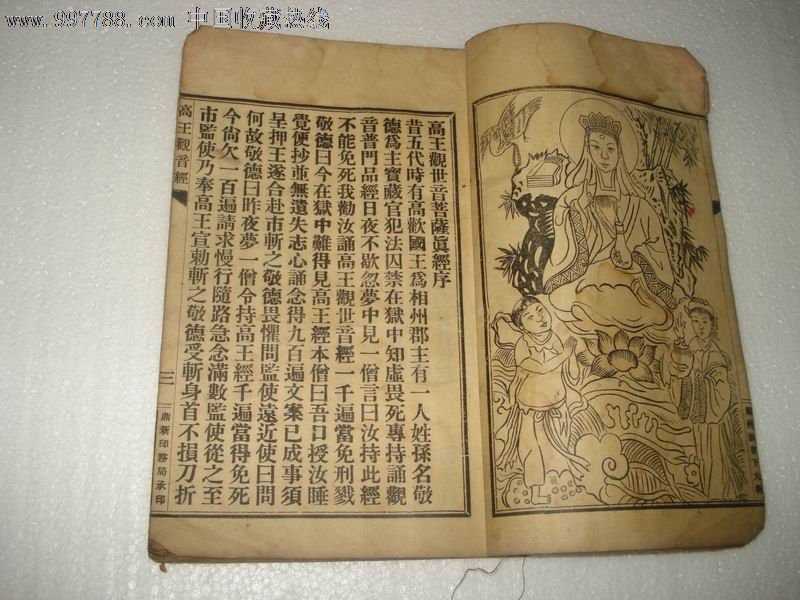 www.997788.com 中国收藏热线
高王觀世音菩薩眞經序
昔五代時有高歡國王爲相州郡主有一人姓孫名敬
德爲主寶藏官犯法囚禁在獄中知虛畏死專持誦觀
音普門品經日夜不歇忽夢中見一僧言曰汝持此經
不能免死我勸汝誦高王觀世音經一千遍當免刑戮
敬德曰今在獄中難得見高王經本僧曰吾口授汝睡
覺便抄並無遺失志心誦念得九百遍文案已成事須
呈押王遂合赴市斬之敬德畏懼問監使遠近使曰問
何故敬德曰昨夜夢一僧令持高王經千遍當得免死
今尙欠一百遍請求慢行隨路急念滿數監使從之至
市監使乃奉高王宣勅斬之敬德受斬身首不損刀折
高王觀音經
三
鼎新印務局承印